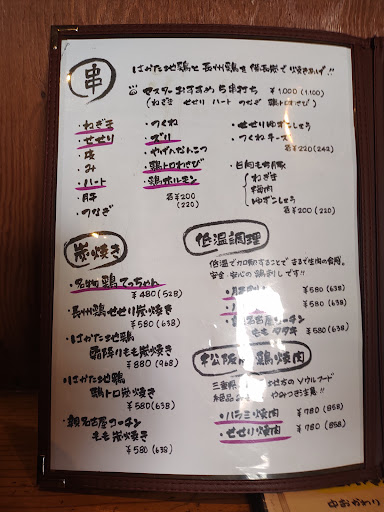 串
はかた地鶏と長州鶏を備長炭で焼きあげ!!
マスターおすすめ5串打ち ¥1,000(1100)
(ねぎま せせり ハート つなぎ 鶏トロわさび)
・ねぎま
・せせり
・皮
・み
・ハート
・肝
・つなぎ
・つくね
・ズリ
・やげんなんこつ
・鶏トロわさび
・鶏ホルモン
各¥200
(220)
・せせりゆずこしょう
・つくねチーズ
各¥220(242)
・もち豚
ねぎま
梅肉
ゆずこしょう
各¥200(220)
炭焼き
・名物 鶏てっちゃん
¥480(528)
・長州鶏せせり炭焼き
¥580(638)
・はかた地鶏
霜降りもも炭焼き
¥880(968)
・はかた地鶏
鶏トロ炭焼き
¥580(638)
・親名古屋コーチン
もも炭焼き
¥580(638)
低温調理
低温で加熱することでまるで生肉の食感。
安全・安心の鶏刺しです!!
¥580(638)
¥580(638)
名古屋コーチン
ももタタキ ¥580(638)
松阪 鶏焼肉
三重県 地方のソウルフード
絶品 やみつき注意!!
・ハラミ焼肉 ¥780(858)
・せせり焼肉 ¥780(858)
中おかわり